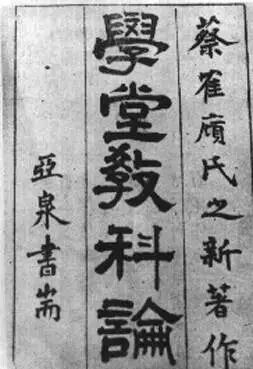 蔡隺廎氏之新著作
學堂敎科論
亞泉書耑